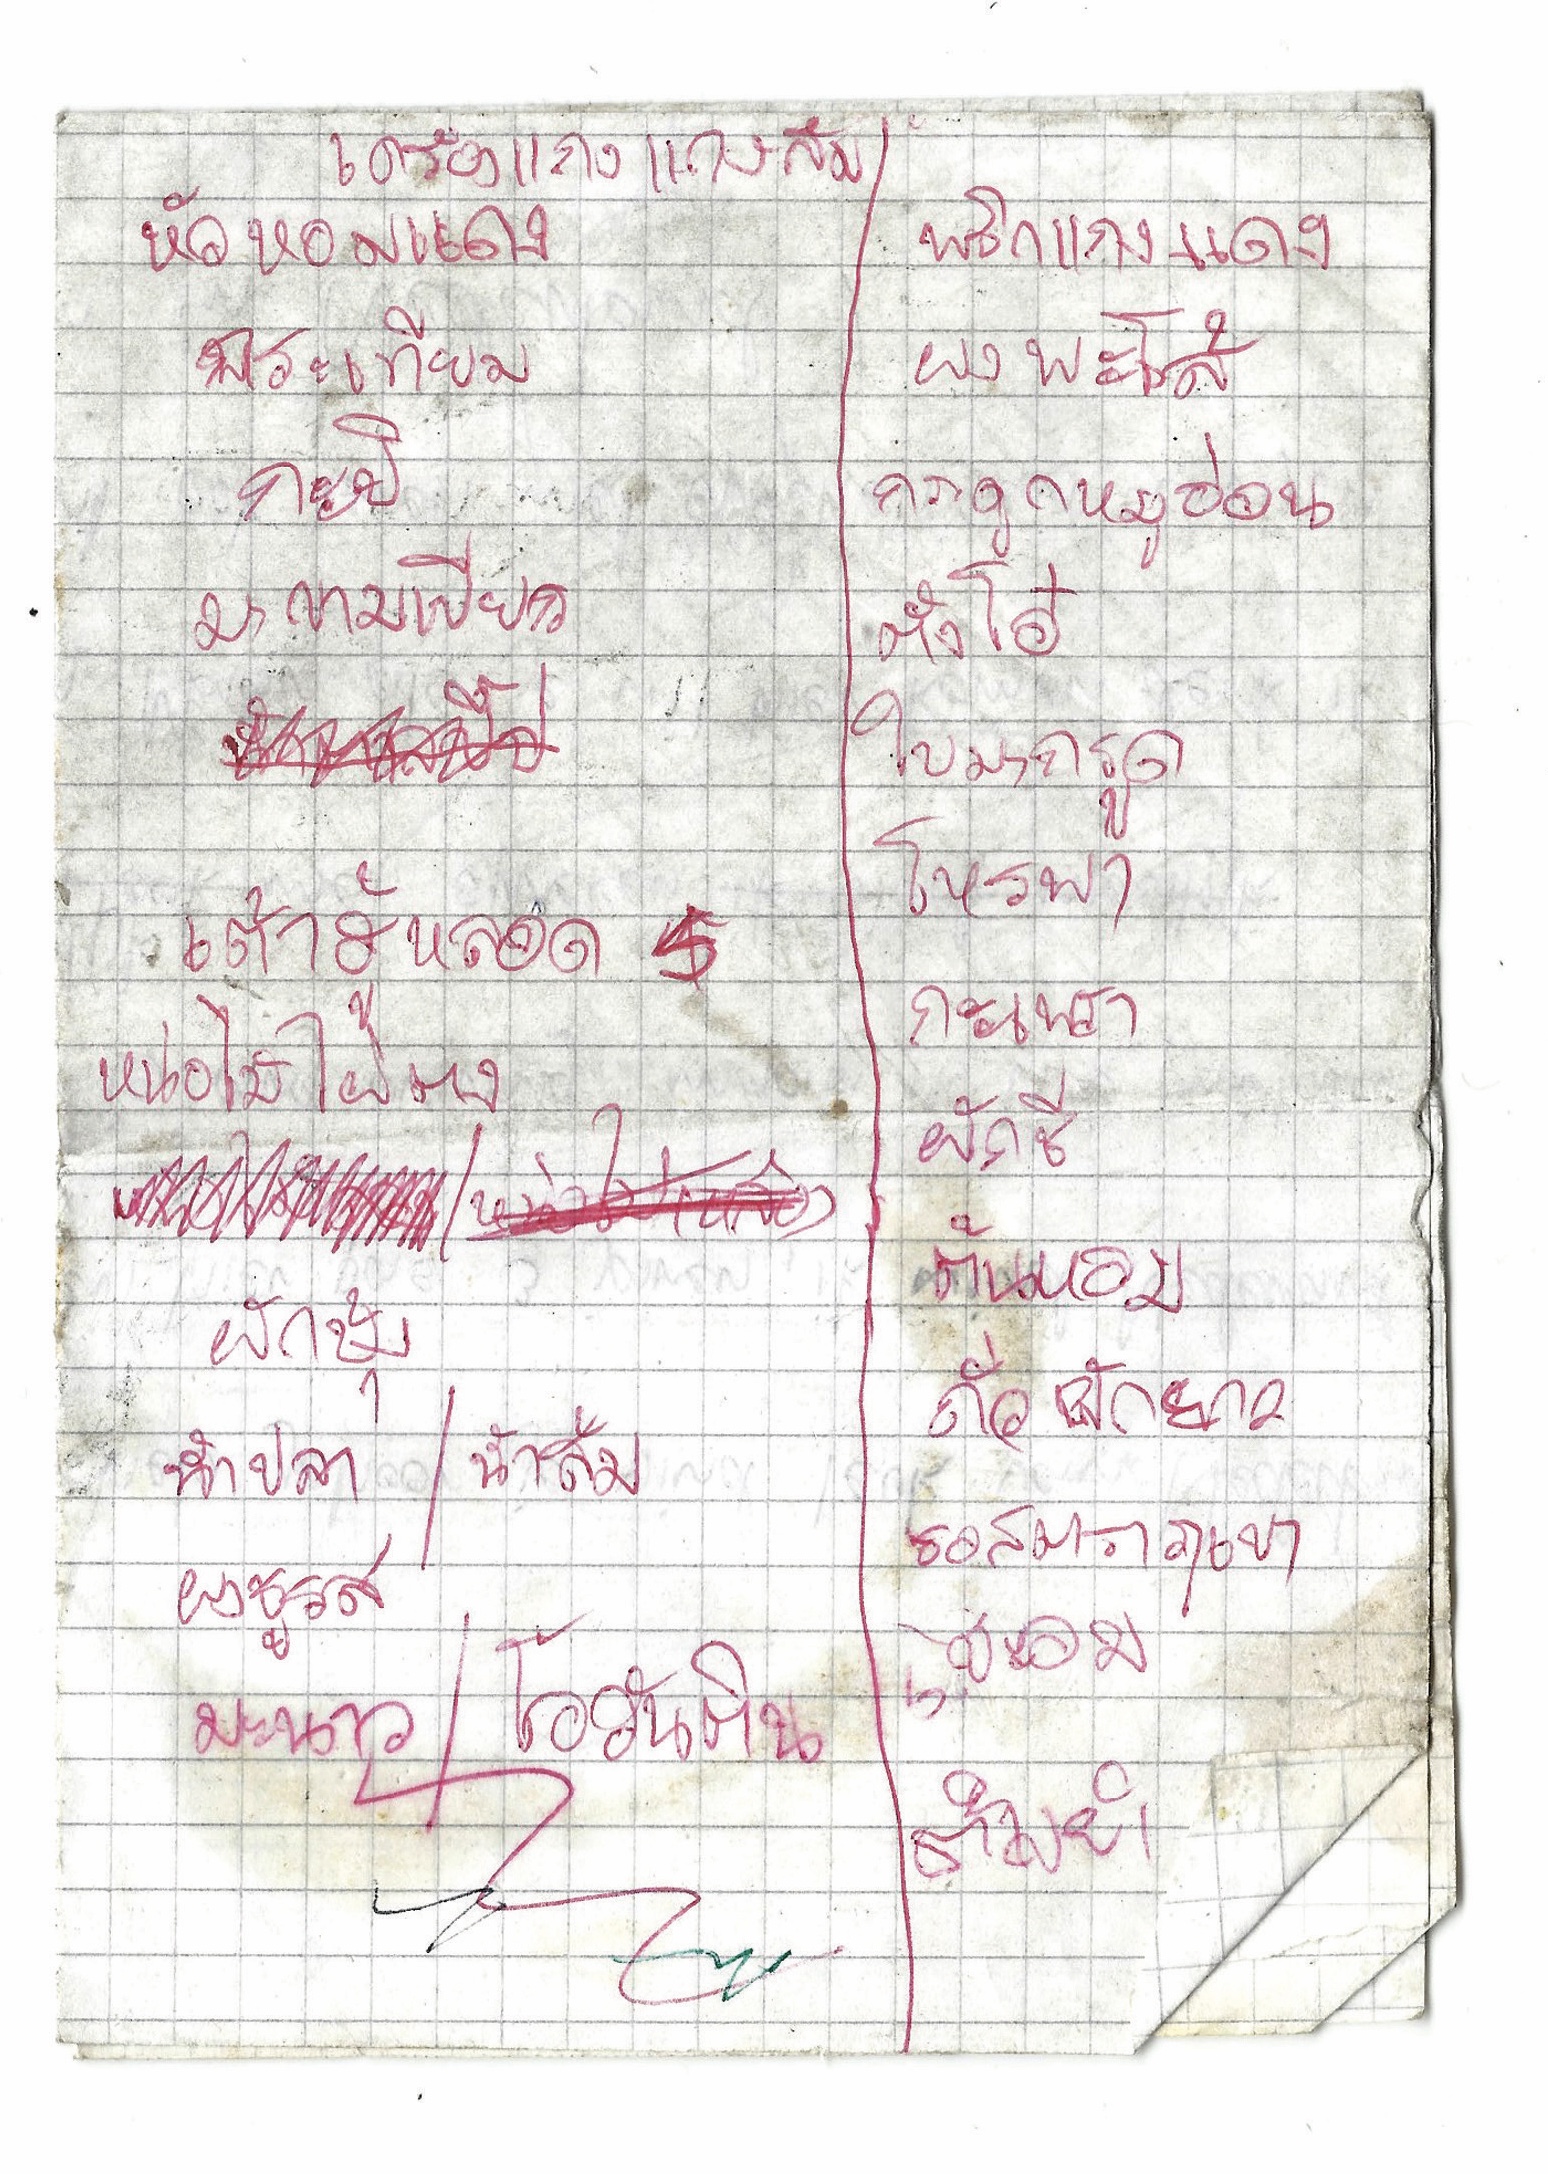 เครื่องแกง แกงส้ม
หัวหอมแดง
กระเทียม
กะปิ
มะขามเปียก
เต้าฮู้หลอด 5
หน่อไม้ไผ่ตง
ผักชุบ
น้ำปลา / น้ำส้ม
ผงชูรส
มะนาว / โอวันติน
พริกแกงแดง
ผงพะโล้
กระดูกหมูอ่อน
ตั้งโอ๋
ใบมะกรูด
โหรพา
กะเพรา
ผักชี
ต้นหอม
ถั่วฝักยาว
ซอสมะรา ภูเขา
ชะอม
ต้ำมยำ